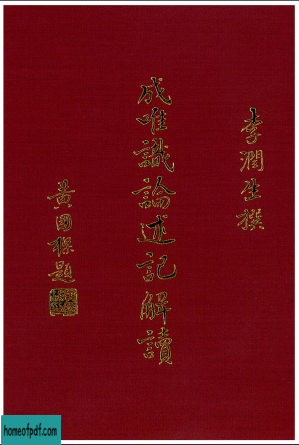 李潤生撰
成唯識論述記解讀
黃國楪題
homeofpdf.com